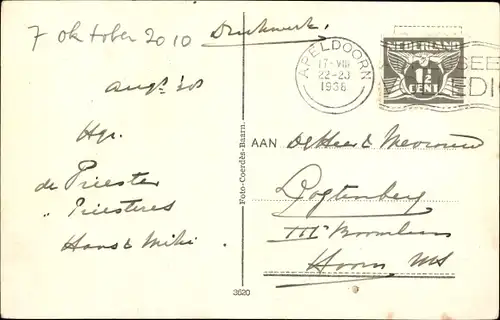 7 oktober 2010
Drukwerk.
APELDOORN
17.VIII
22-23
1936
NEDERLAND
1½
CENT
Hgr.
de Priester
" Priesteres
Hans & Miki
Foto-Coerdès-Baarn.
AAN De Heer & Mevrouw
Oogtenberg
Hoorn
3620